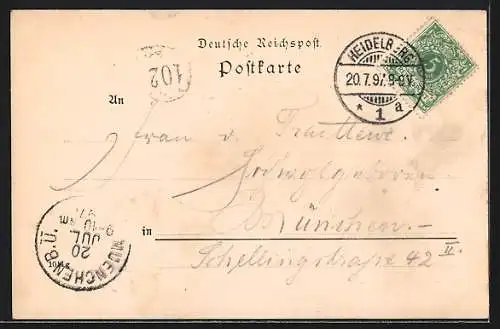 Deutsche Reichspost
Postkarte
HEIDELBERG
20.7.97. 8-9V.
* 1 a
102
5
An
Frau v.
Hochwohlgeboren
in München.
Schellingstraße 42 II.
MUENCHEN B.Ü.
20
JUL.
9-10
97